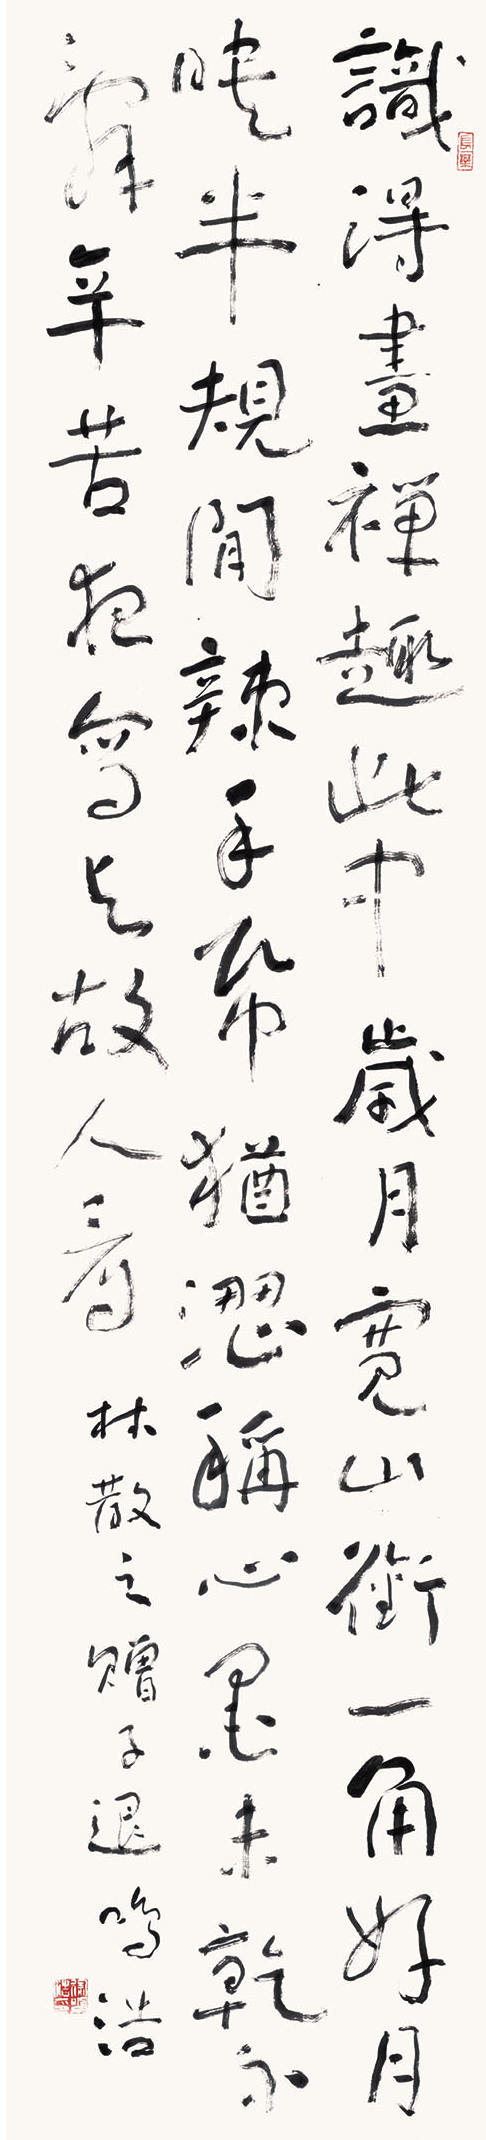 識得畫禪趣此中歲月寬山銜一角好月
映半規閒辣手帋猶澀稱心墨未乾不
辭辛苦夜寫与故人看 林散之贈子退 鳴浩